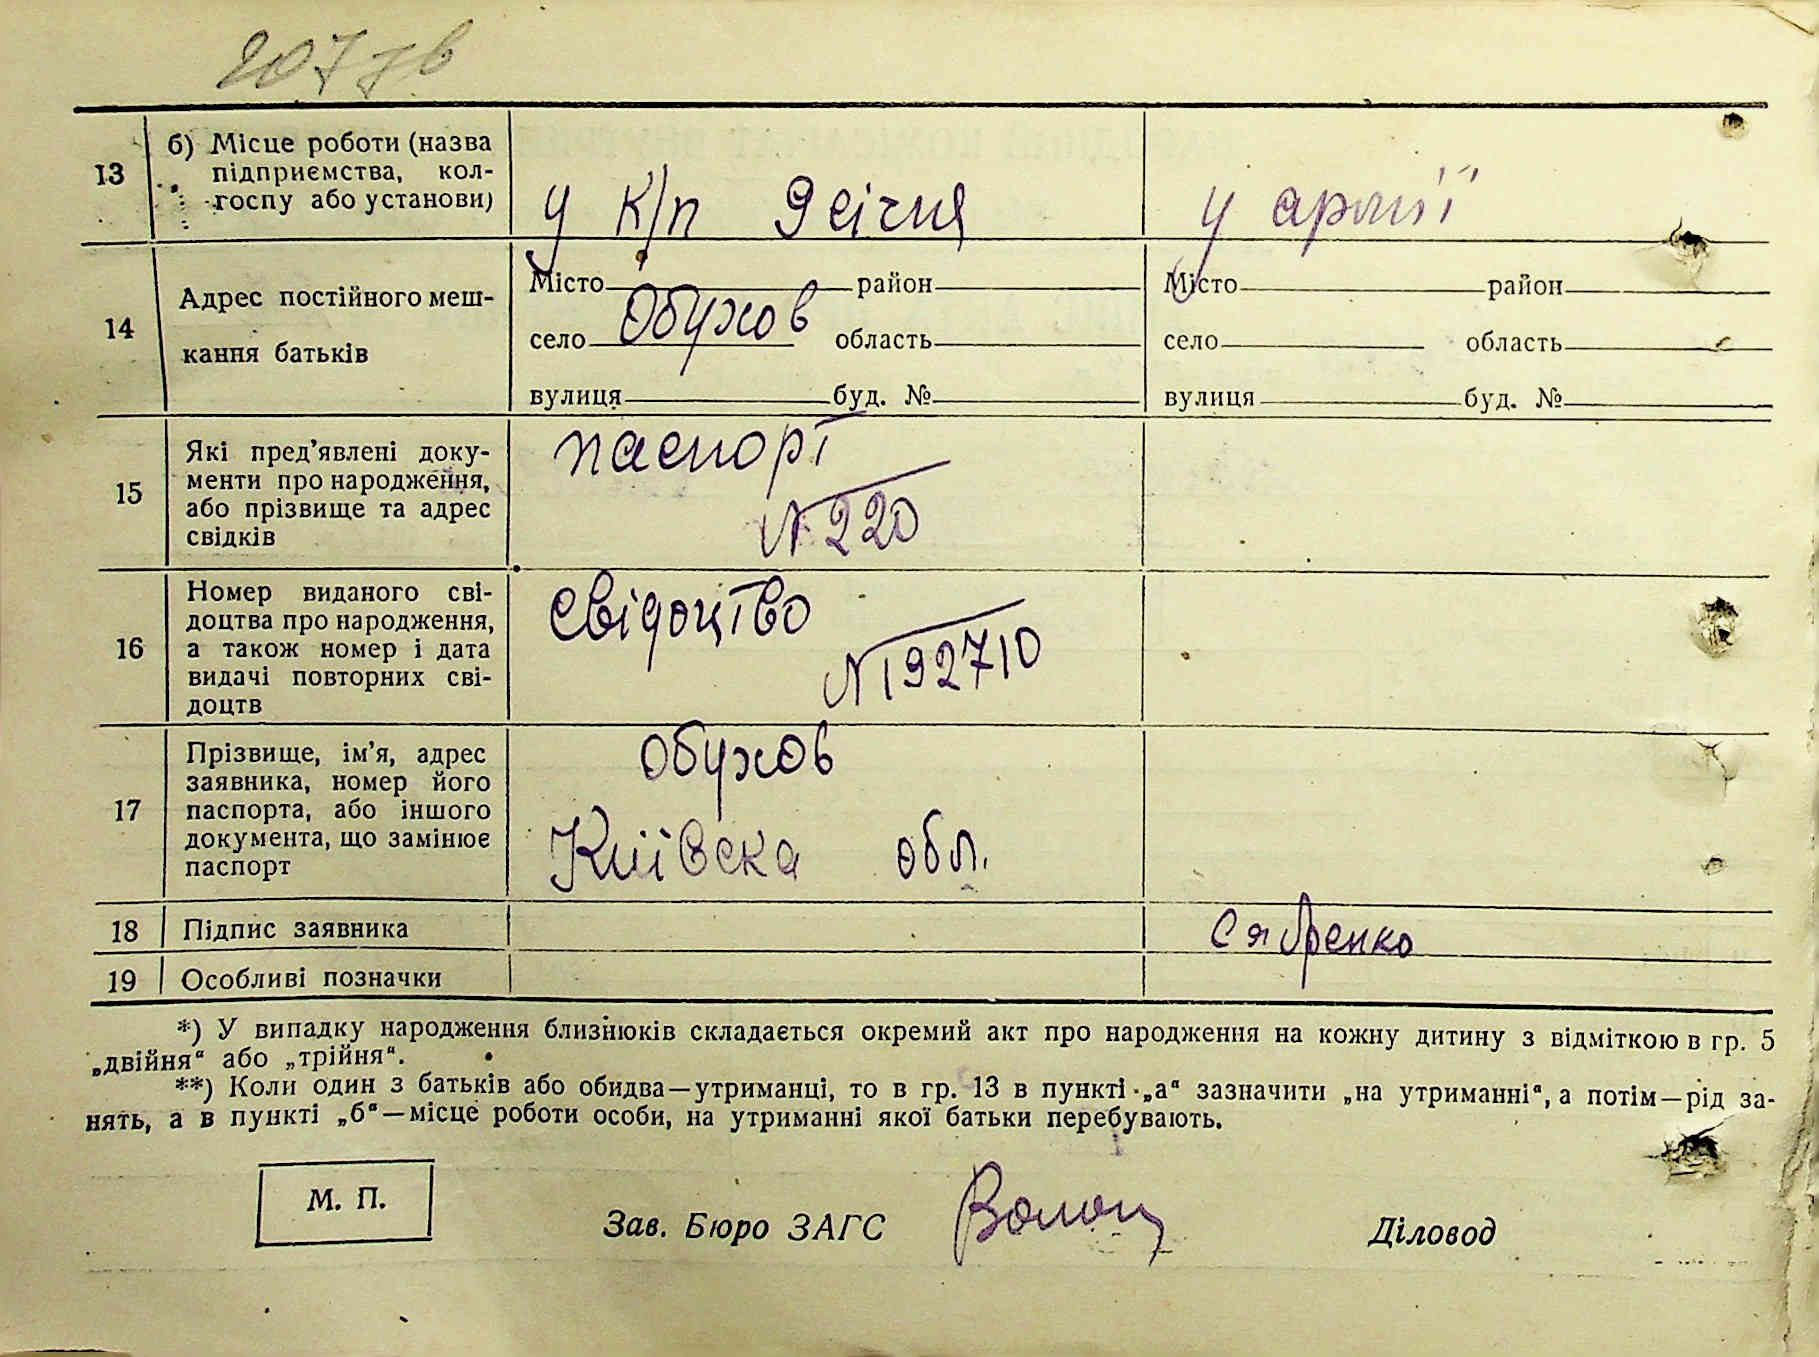 207 зв
13
б) Місце роботи (назва
підприємства, кол-
госпу або установи)
у к/п 9 січня
у армії
14
Адрес постійного меш-
кання батьків
Місто район
село Обухов область
вулиця буд. №
Місто район
село область
вулиця буд. №
15
Які пред’явлені доку-
менти про народження,
або прізвище та адрес
свідків
паспорт
№ 220
16
Номер виданого сві-
доцтва про народження,
а також номер і дата
видачі повторних сві-
доцтв
свідоцтво
№ 192710
17
Прізвище, ім’я, адрес
заявника, номер його
паспорта, або іншого
документа, що замінює
паспорт
Обухов
Київска обл.
18 Підпис заявника
Сябренко
19 Особливі позначки
*) У випадку народження близнюків складається окремий акт про народження на кожну дитину з відміткою в гр. 5
„двійня“ або „трійня“.
**) Коли один з батьків або обидва—утриманці, то в гр. 13 в пункті „а“ зазначити „на утриманні“, а потім—рід за-
нять, а в пункті „б“—місце роботи особи, на утриманні якої батьки перебувають.
М. П.
Зав. Бюро ЗАГС
Діловод